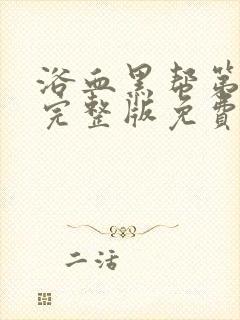 浴血黑帮第
完整版免费
二活